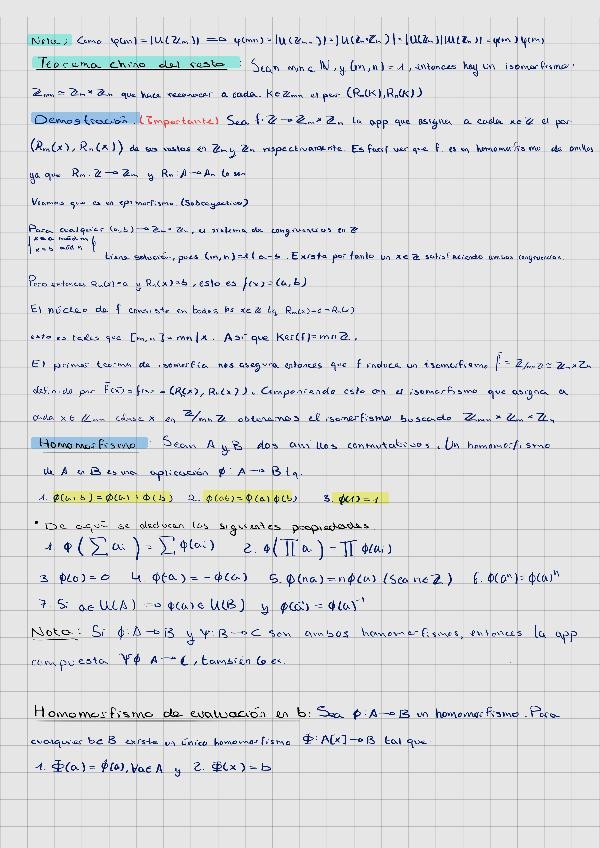 Nota: Como φ(m) = |U(Zm)| => φ(mn) = |U(Zmn)| = |U(Zm×Zn)| = |U(Zm)||U(Zn)| = φ(m) φ(n)
Teorema chino del resto: Sean m,n ∈ N, y (m,n) = 1, entonces hay un isomorfismo:
Zmn ≃ Zm × Zn que hace reconocer a cada K∈Zmn el par (Rm(K), Rn(K))
Demostración: (Importante) Sea f: Z → Zm × Zn la app que asigna a cada x∈Z el par
(Rm(x), Rn(x)) de sus restos en Zm y Zn respectivamente. Es fácil ver que f es un homomorfismo de anillos
ya que Rm: Z → Zm y Rn: A → An lo son
Veamos que es un epimorfismo (Sobreyectivo)
Para cualquier (a,b) → Zm × Zn, el sistema de congruencias en Z
{x≡a mód m
x≡b mód n}
tiene solución, pues (m,n) = 1 | a-b. Existe por tanto un x∈Z satisfaciendo ambas congruencias.
Pero entonces Rm(x)=a y Rn(x)=b, esto es f(x) = (a,b)
El núcleo de f consiste en todos los x∈Z tq Rm(x)=0=Rn(x)
esto es tales que [m,n] = mn|x. Así que Ker(f) = mnZ.
El primer teorema de isomorfía nos asegura entonces que f induce un isomorfismo f̄ = Z/mnZ ≃ Zm × Zn
definido por f̄(x̄) = f(x) = (Rm(x), Rn(x)). Componiendo esto con el isomorfismo que asigna a
cada x ∈ Zmn clase x en Z/mnZ obtenemos el isomorfismo buscado Zmn ≃ Zm × Zn
Homomorfismo: Sean A y B dos anillos conmutativos. Un homomorfismo
de A en B es una aplicación ϕ: A → B tq.
1. ϕ(a+b) = ϕ(a) + ϕ(b) 2. ϕ(ab) = ϕ(a) ϕ(b) 3. ϕ(1) = 1
• De aquí se deducen las siguientes propiedades
1. ϕ(∑ ai) = ∑ ϕ(ai) 2. ϕ(∏ a) = ∏ ϕ(ai)
3. ϕ(0) = 0 4. ϕ(-a) = -ϕ(a) 5. ϕ(na) = nϕ(a) (Sea n∈Z) 6. ϕ(aⁿ) = ϕ(a)ⁿ
7. Si a∈U(A) => ϕ(a) ∈ U(B) y ϕ(a⁻¹) = ϕ(a)⁻¹
Nota: Si ϕ: A → B y Ψ: B → C son ambos homomorfismos, entonces la app
compuesta Ψϕ A → C, también lo es.
Homomorfismo de evaluación en b: Sea ϕ: A → B un homomorfismo. Para
cualquier b∈B existe un único homomorfismo Φ: A[x] → B tal que
1. Φ(a) = ϕ(a), ∀a∈A y 2. Φ(x) = b